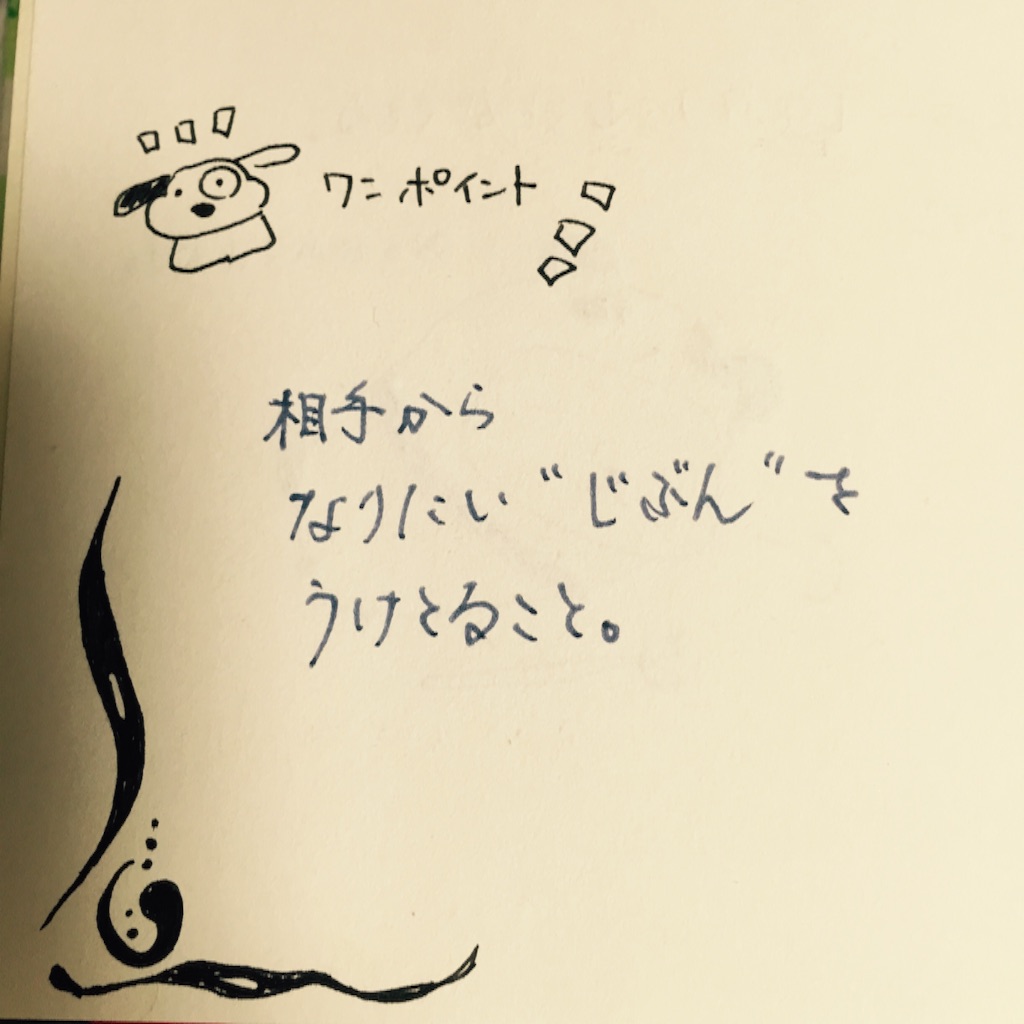 ワンポイント
相手から
なりたい“じぶん“を
うけとること。